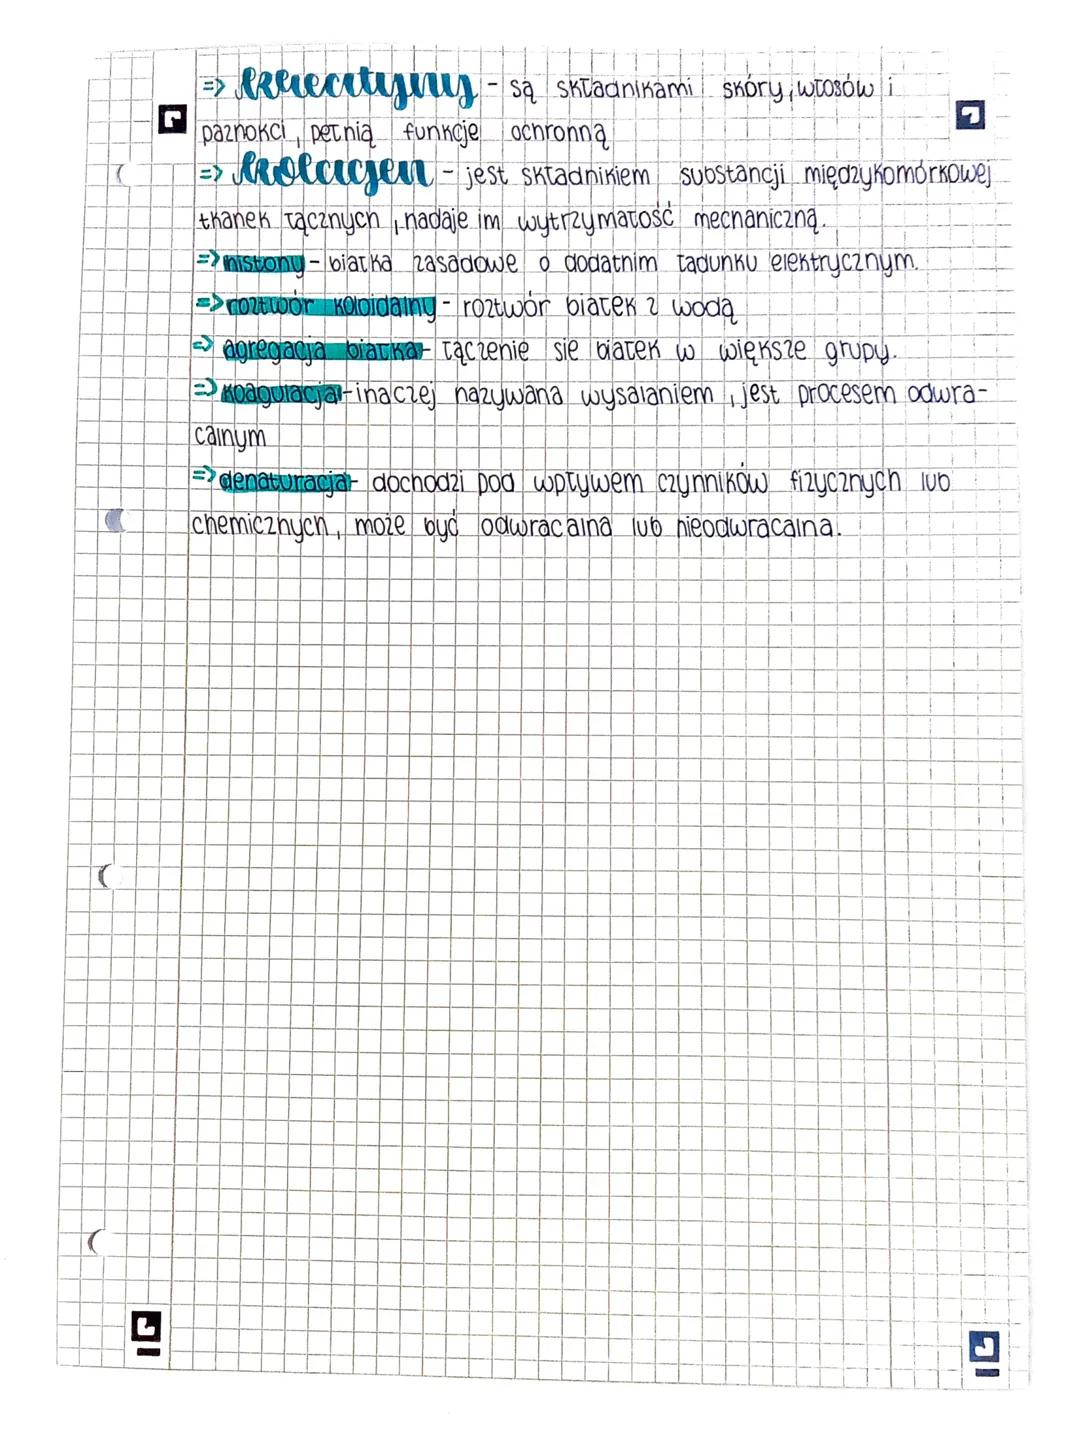 => keratyny - są składnikami skóry, włosów i
paznokci, pełnią funkcję ochronną
=> kolagen - jest składnikiem substancji międzykomórkowej
tkanek łącznych, nadaje im wytrzymałość mechaniczną.
=> histony - białka zasadowe o dodatnim ładunku elektrycznym.
=> roztwór koloidalny - roztwór białek z wodą
=> agregacja białka - łączenie się białek w większe grupy.
=> koagulacja - inaczej nazywana wysalaniem, jest procesem odwra-
calnym
=> denaturacja - dochodzi pod wpływem czynników fizycznych lub
chemicznych, może być odwracalna lub nieodwracalna.